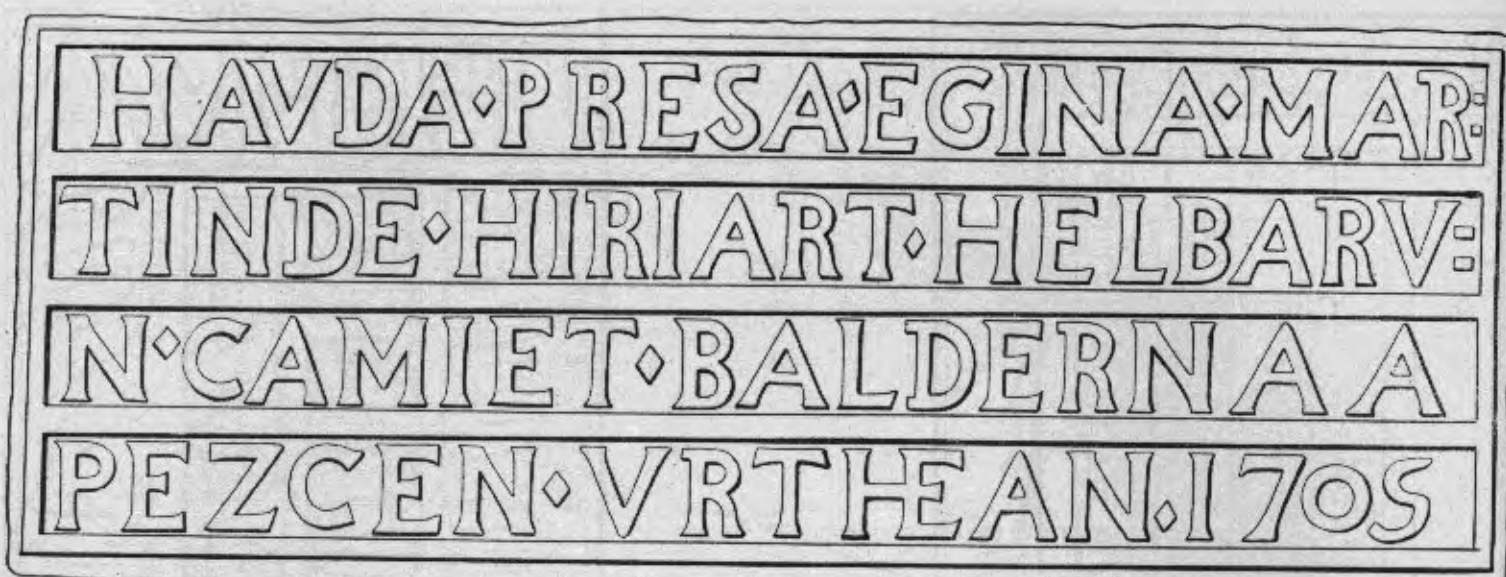 HAVDA⋄PRESA⋄EGINA⋄MAR:
TINDE⋄HIRIART⋄HELBARV:
N⋄CAMIET⋄BALDERNAA
PEZCEN⋄VRTHEAN⋄1705